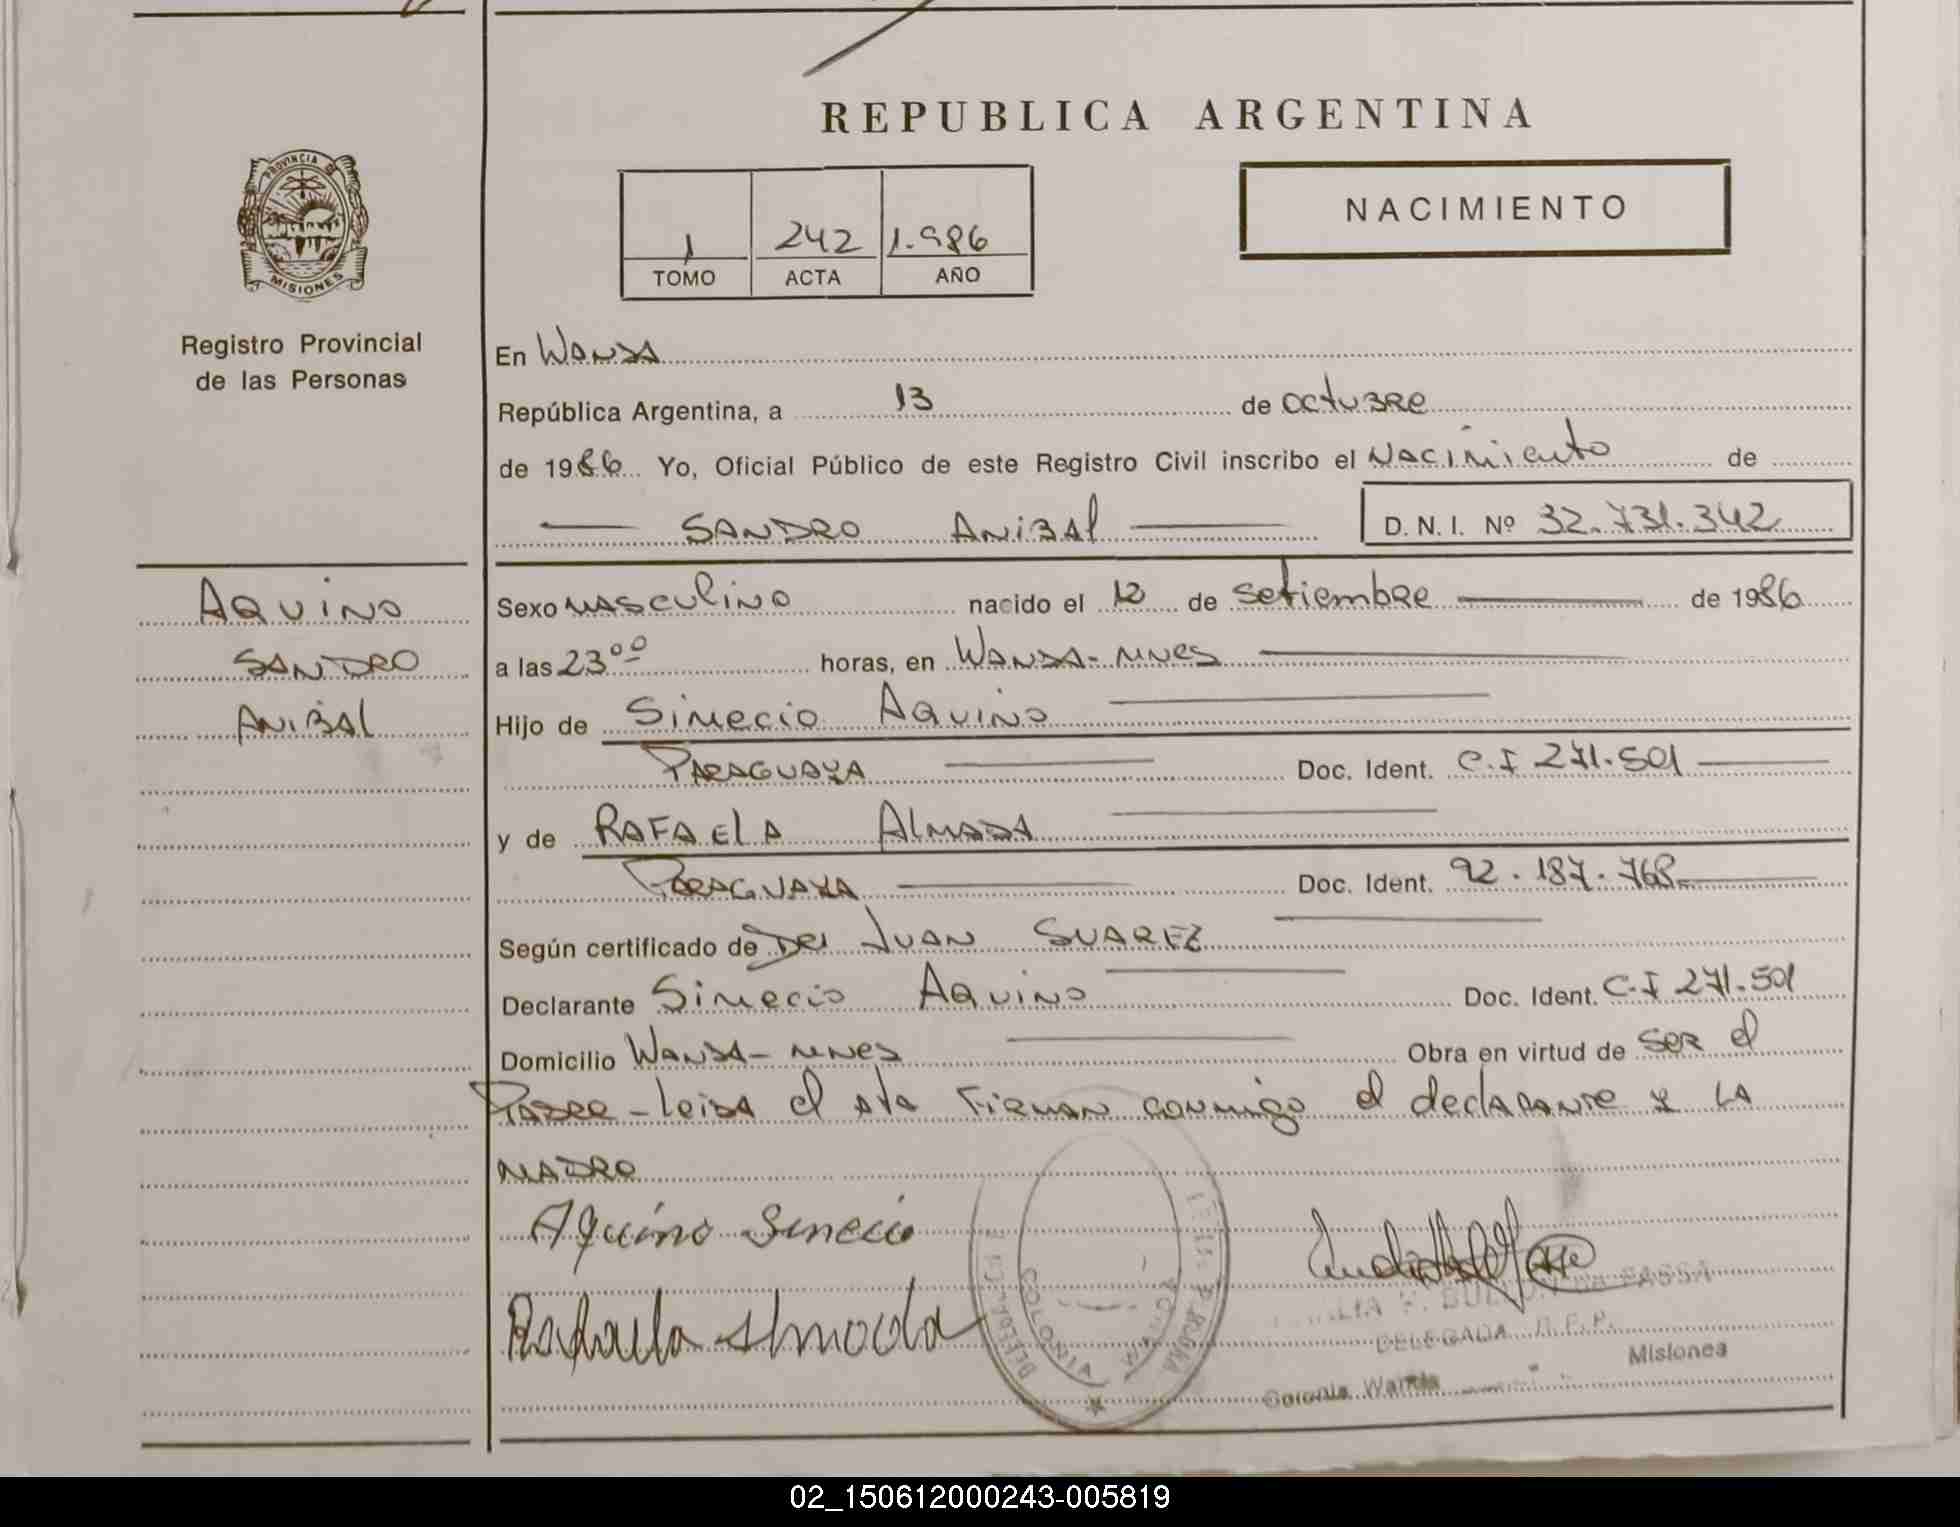 REPUBLICA ARGENTINA
PROVINCIA DE
MISIONES
Registro Provincial
de las Personas
1 242 1.986
TOMO ACTA AÑO
NACIMIENTO
En Wanda
República Argentina, a 13 de octubre
de 1986 Yo, Oficial Público de este Registro Civil inscribo el Nacimiento de
SANDRO ANIBAL D.N.I. Nº 32.731.342
AQUINO
SANDRO
ANIBAL
Sexo masculino nacido el 12 de setiembre de 1986
a las 23 00 horas, en Wanda - mnes
Hijo de Simecio Aquino
PARAGUAYA Doc. Ident. C.I 271.501
y de RAFAELA Almada
PARAGUAYA Doc. Ident. 92.187.768
Según certificado de Del Juan SUAREZ
Declarante Simecio Aquino Doc. Ident. C.I 271.501
Domicilio Wanda - mnes Obra en virtud de ser el
Padre - Leida el ata Firman conmigo el declarante y LA
MADRE
Aquino Simecio
Rafaela Almada
COLONIA WANDA
DELEGADA R.P.P.
Misiones
Colonia Wanda
02_150612000243-005819